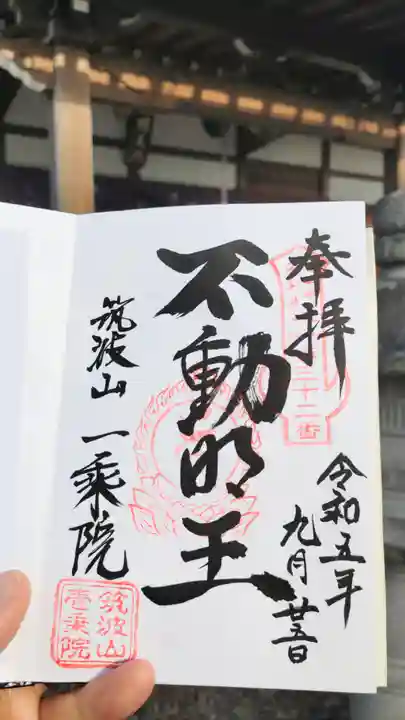 奉拝
三十二番
令和五年
九月廿五日
不動明王
筑波山 一乗院
筑波山
壱乗院